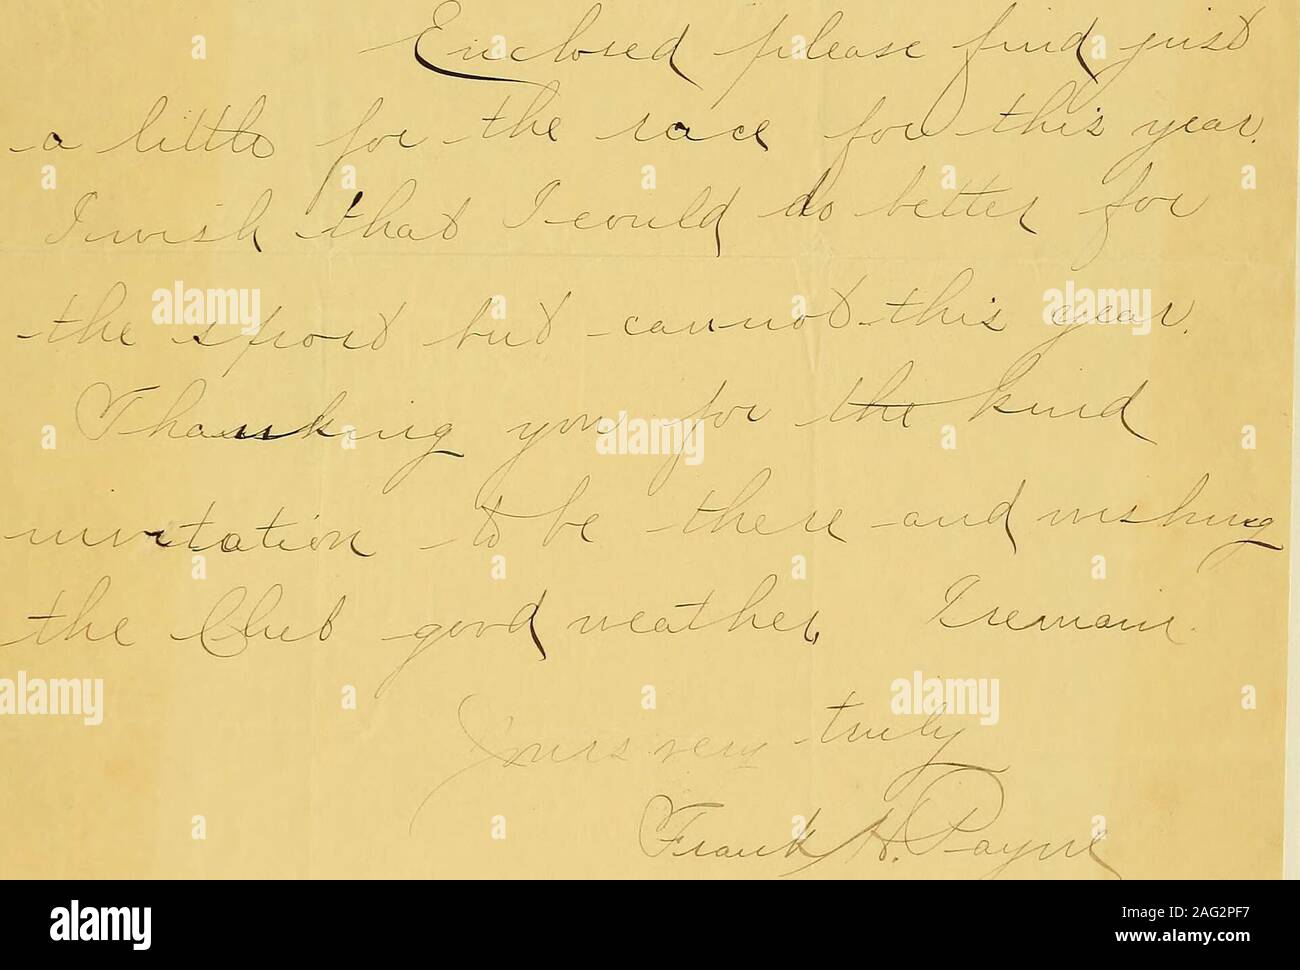 Enclosed please find just
a little for the race for this year.
I wish that I could do better for
the sport but cannot this year.
Thanking you for the kind
invitation to be there and wishing
the Club good weather, I remain.
Yours very truly
Frank H. Payne
alamy
alamy
Image ID: 2AG2PF7
www.alamy.com